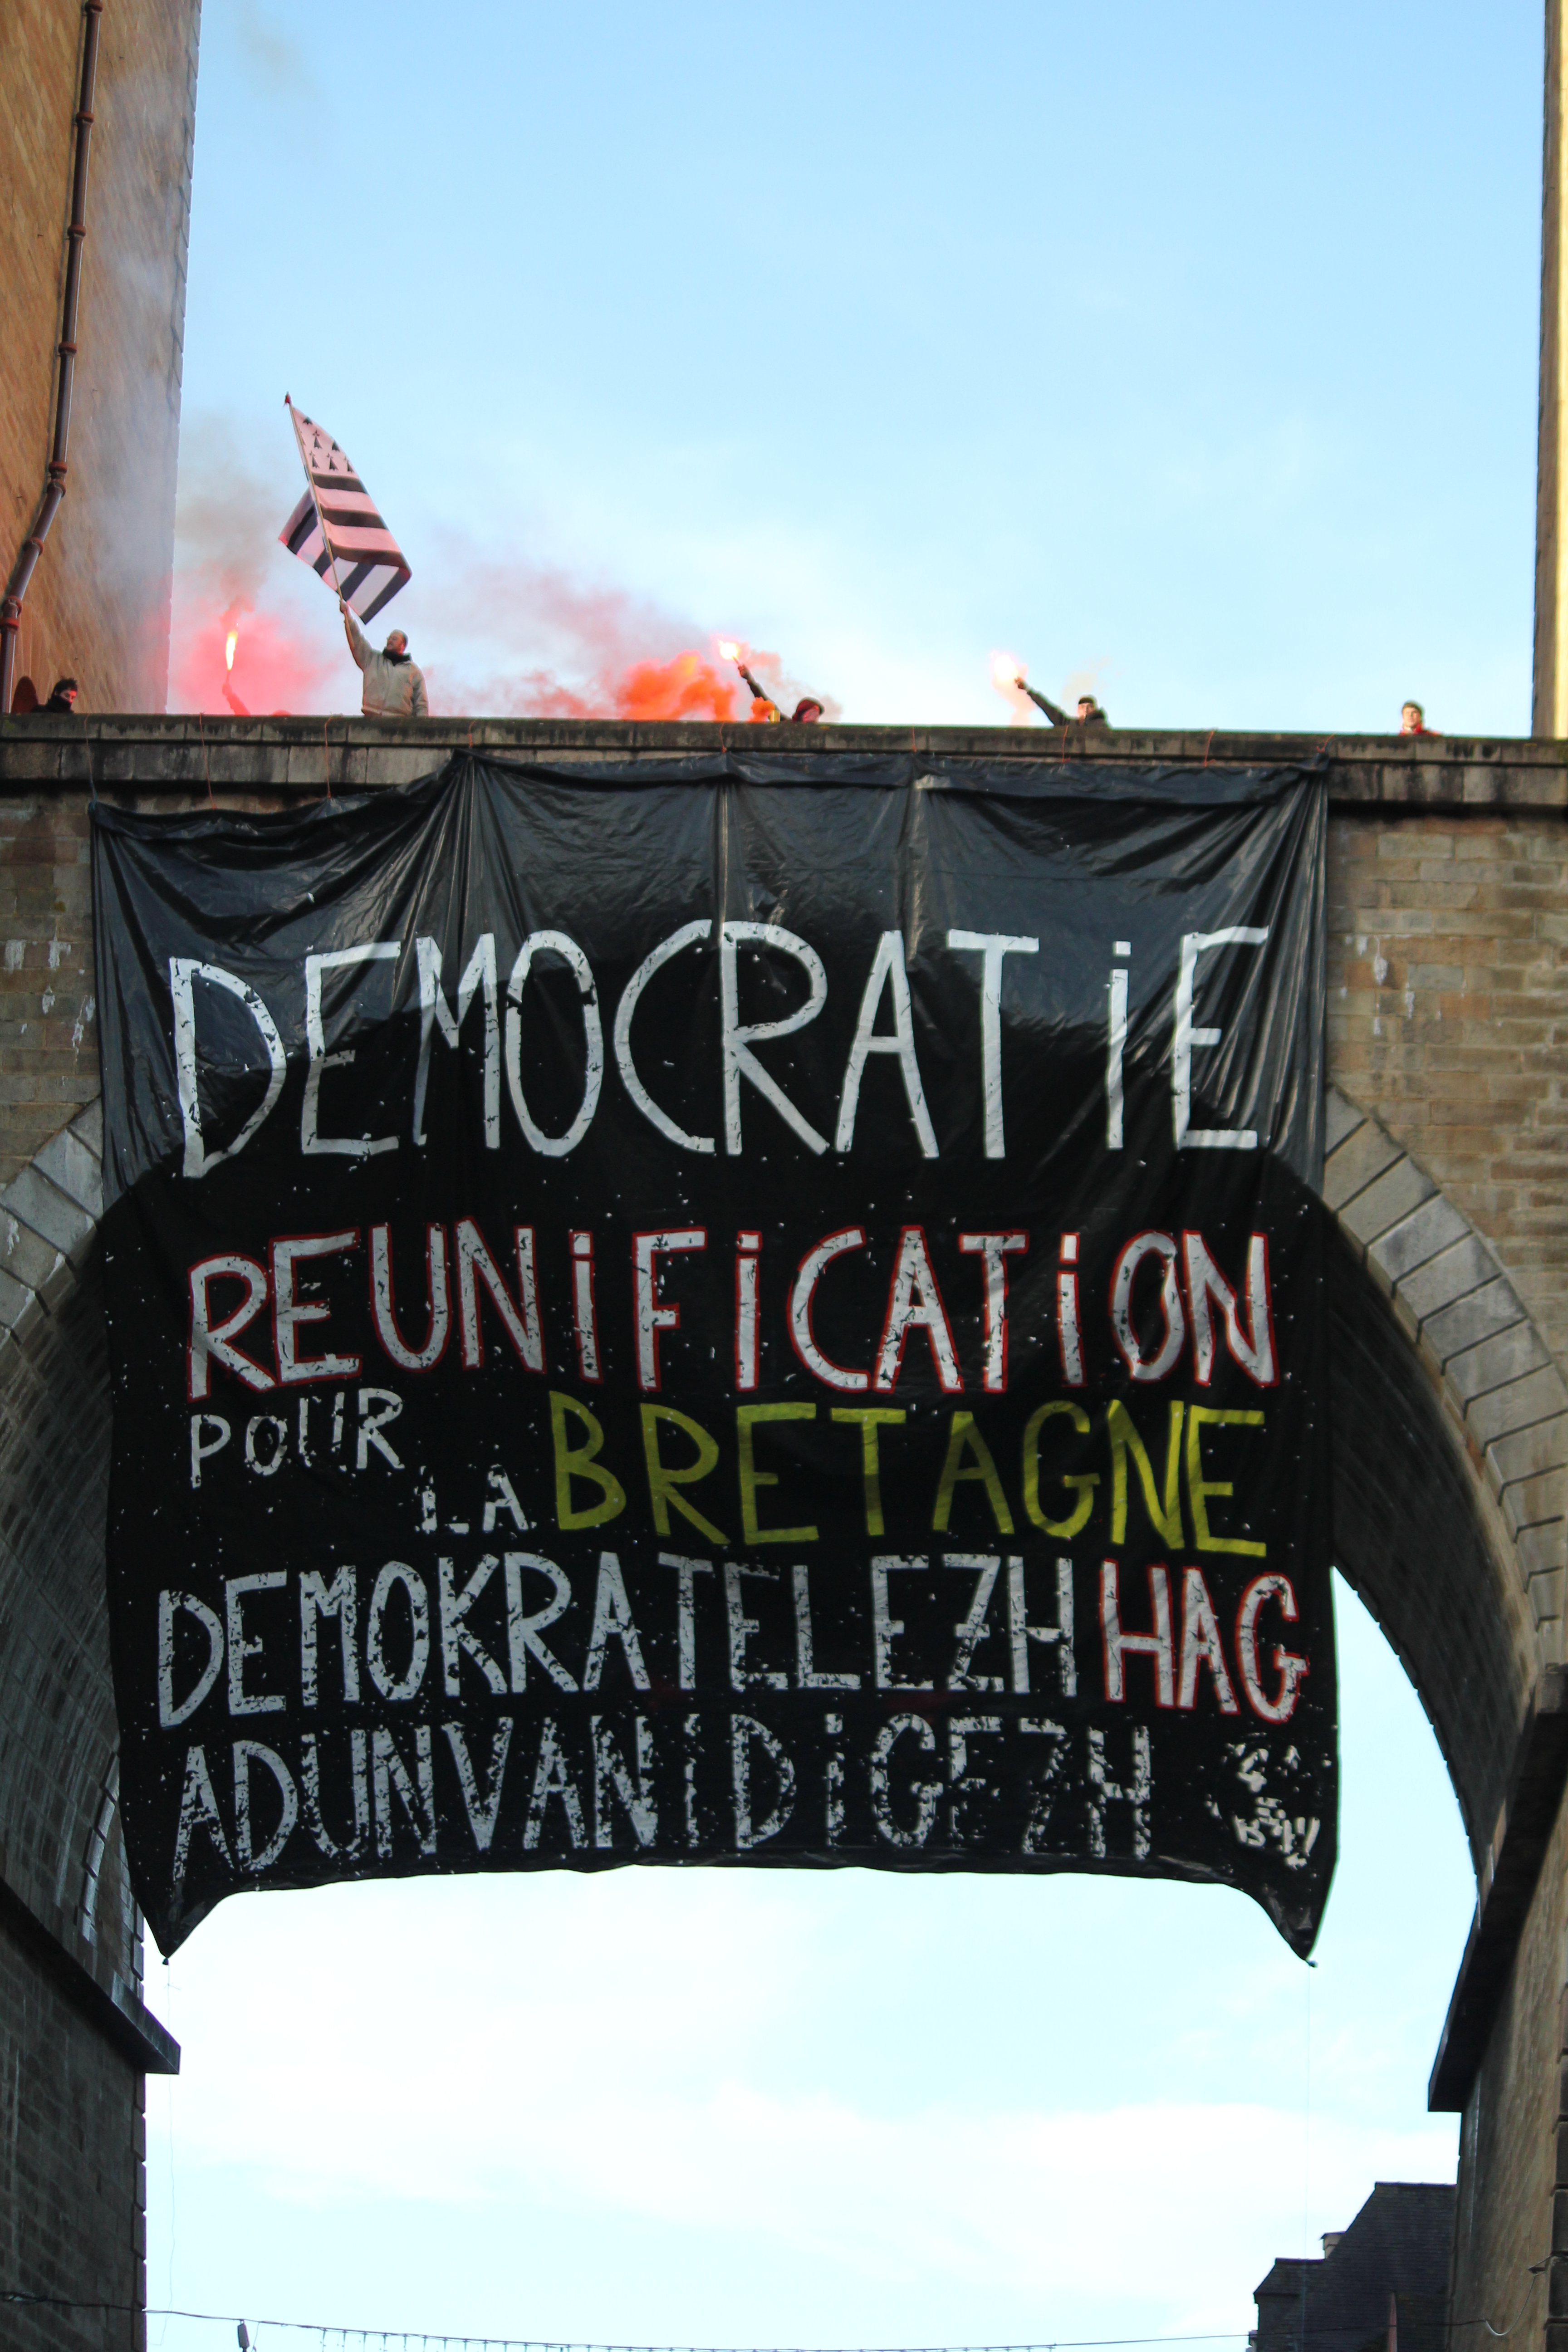 DEMOCRATiE
REUNiFiCATiON
POUR
LA BRETAGNE
DEMOKRATELEZH HAG
ADUNVANiDiGEZH